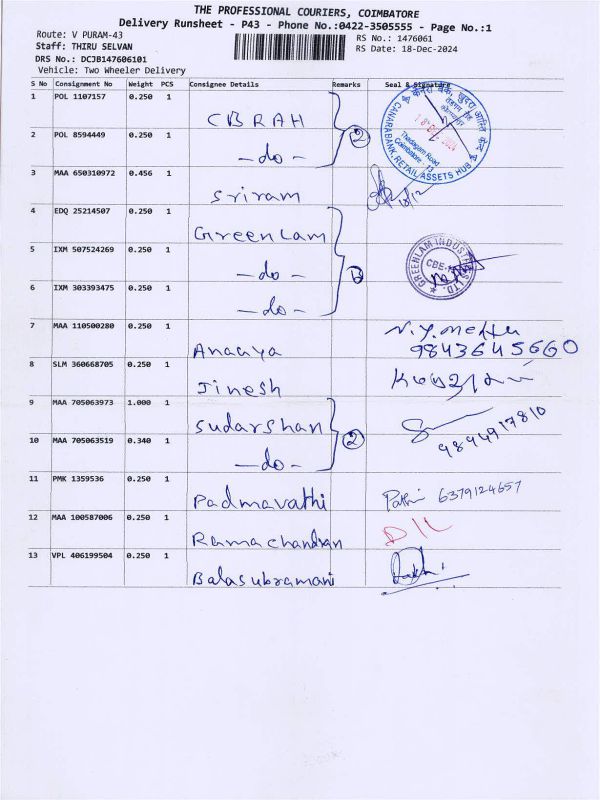 THE PROFESSIONAL COURIERS, COIMBATORE
Delivery Runsheet - P43 - Phone No.:0422-3505555 - Page No.:1
Route: V PURAM-43
RS No.: 1476061
Staff: THIRU SELVAN
RS Date: 18-Dec-2024
DRS No.: DCJB147606101
Vehicle: Two Wheeler Delivery
S No Consignment No Weight PCS Consignee Details Remarks Seal & Signature
1 POL 1107157 0.250 1 CBRAH
2 POL 8594449 0.250 1 -do- 2
CANARABANK, RETAIL ASSETS HUB
Thadagam Road
Coimbatore - 13
18 DEC 2024
3 MAA 650310972 0.456 1 Sriram
4 EDQ 25214507 0.250 1 GreenLam
5 IXM 507524269 0.250 1 -do-
GREENLAM INDUSTRIES LTD.
6 IXM 303393475 0.250 1 -do-
7 MAA 110500280 0.250 1 Anaaya N.Y. Mehta
9843645660
8 SLM 360668705 0.250 1 Jinesh
9 MAA 705063973 1.000 1 Sudarshan
10 MAA 705063519 0.340 1 -do- 2 9894917810
11 PMK 1359536 0.250 1 Padmavathi 6379124657
12 MAA 100587006 0.250 1 Ramachandran D/L
13 VPL 406199504 0.250 1 Balasubramani